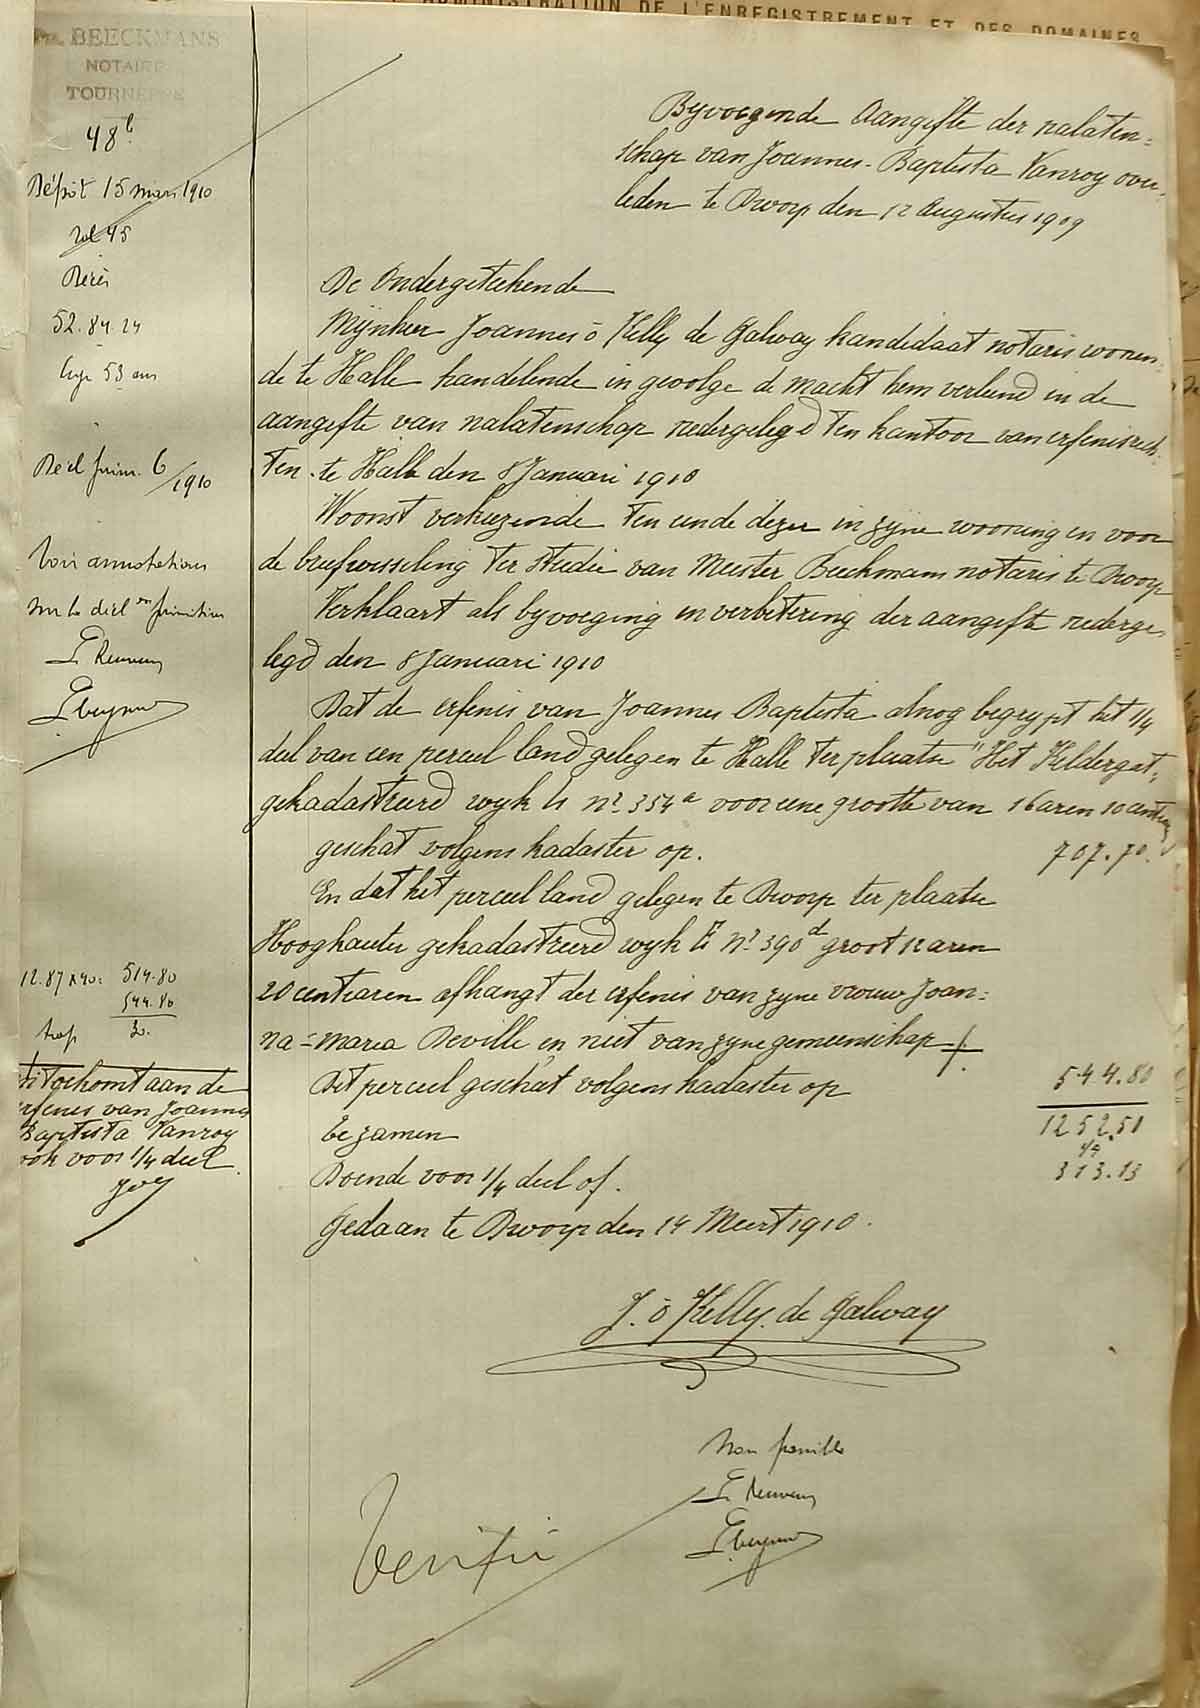 ADMINISTRATION DE L'ENREGISTREMENT ET DES DOMAINES
BEECKMANS
NOTAIRE
TOURNEPPE
48
Dépôt 15 mars 1910
vol 45
Décès
52.84.24
53 ans
Décl prim. 6/1910
Voir annotations
sur la décl on primitive
12.87 x 40 = 514.80
544.80
30.
trop
toekomt aan de
erfenis van Joannes
Baptista Vanroy
ook voor 1/4 deel
Byvoegende Aangifte der nalaten=
schap van Joannes-Baptista Vanroy over=
leden te Dworp den 12 Augustus 1909
De Ondergeteekende
Mijnheer Joannes ô Kelly de Galway kandidaat notaris wonen=
de te Halle handelende in gevolge de macht hem verleend in de
aangifte van nalatenschap nedergelegd ten kantoor van erfenisrech=
ten te Halle den 8 Januari 1910
Woonst verkiezende ten einde dezer in zyne wooning en voor
de briefwisseling ter studie van Meester Beeckmans notaris te Dworp
Verklaart als byvoeging en verbetering der aangifte nederge=
legd den 8 Januari 1910
Dat de erfenis van Joannes Baptista alnog begrypt het 1/4
deel van een perceel land gelegen te Halle ter plaatse "Het Keldergat"
gekadastreerd wyk nr 354a voor eene grootte van 16 aren 10 centiaren
geschat volgens kadaster op. 707.70
En dat het perceel land gelegen te Dworp ter plaatse
Hooghauter gekadastreerd wyk E nr 390d groot 12 aren
20 centiaren afhangt der erfenis van zyne vrouw Joan=
na=Maria Deville en niet van zyne gemeenschap +
Dit perceel geschat volgens kadaster op 544.80
te zamen 1252.50
1/4
Doende voor 1/4 deel of. 313.13
Gedaan te Dworp den 14 Meert 1910.
J. ô Kelly de Galway
Non
Vérifié